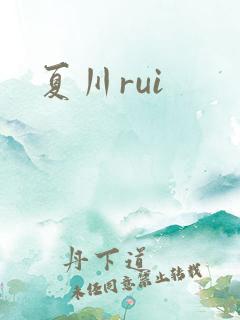 夏川rui
丹下道
未经同意禁止转载